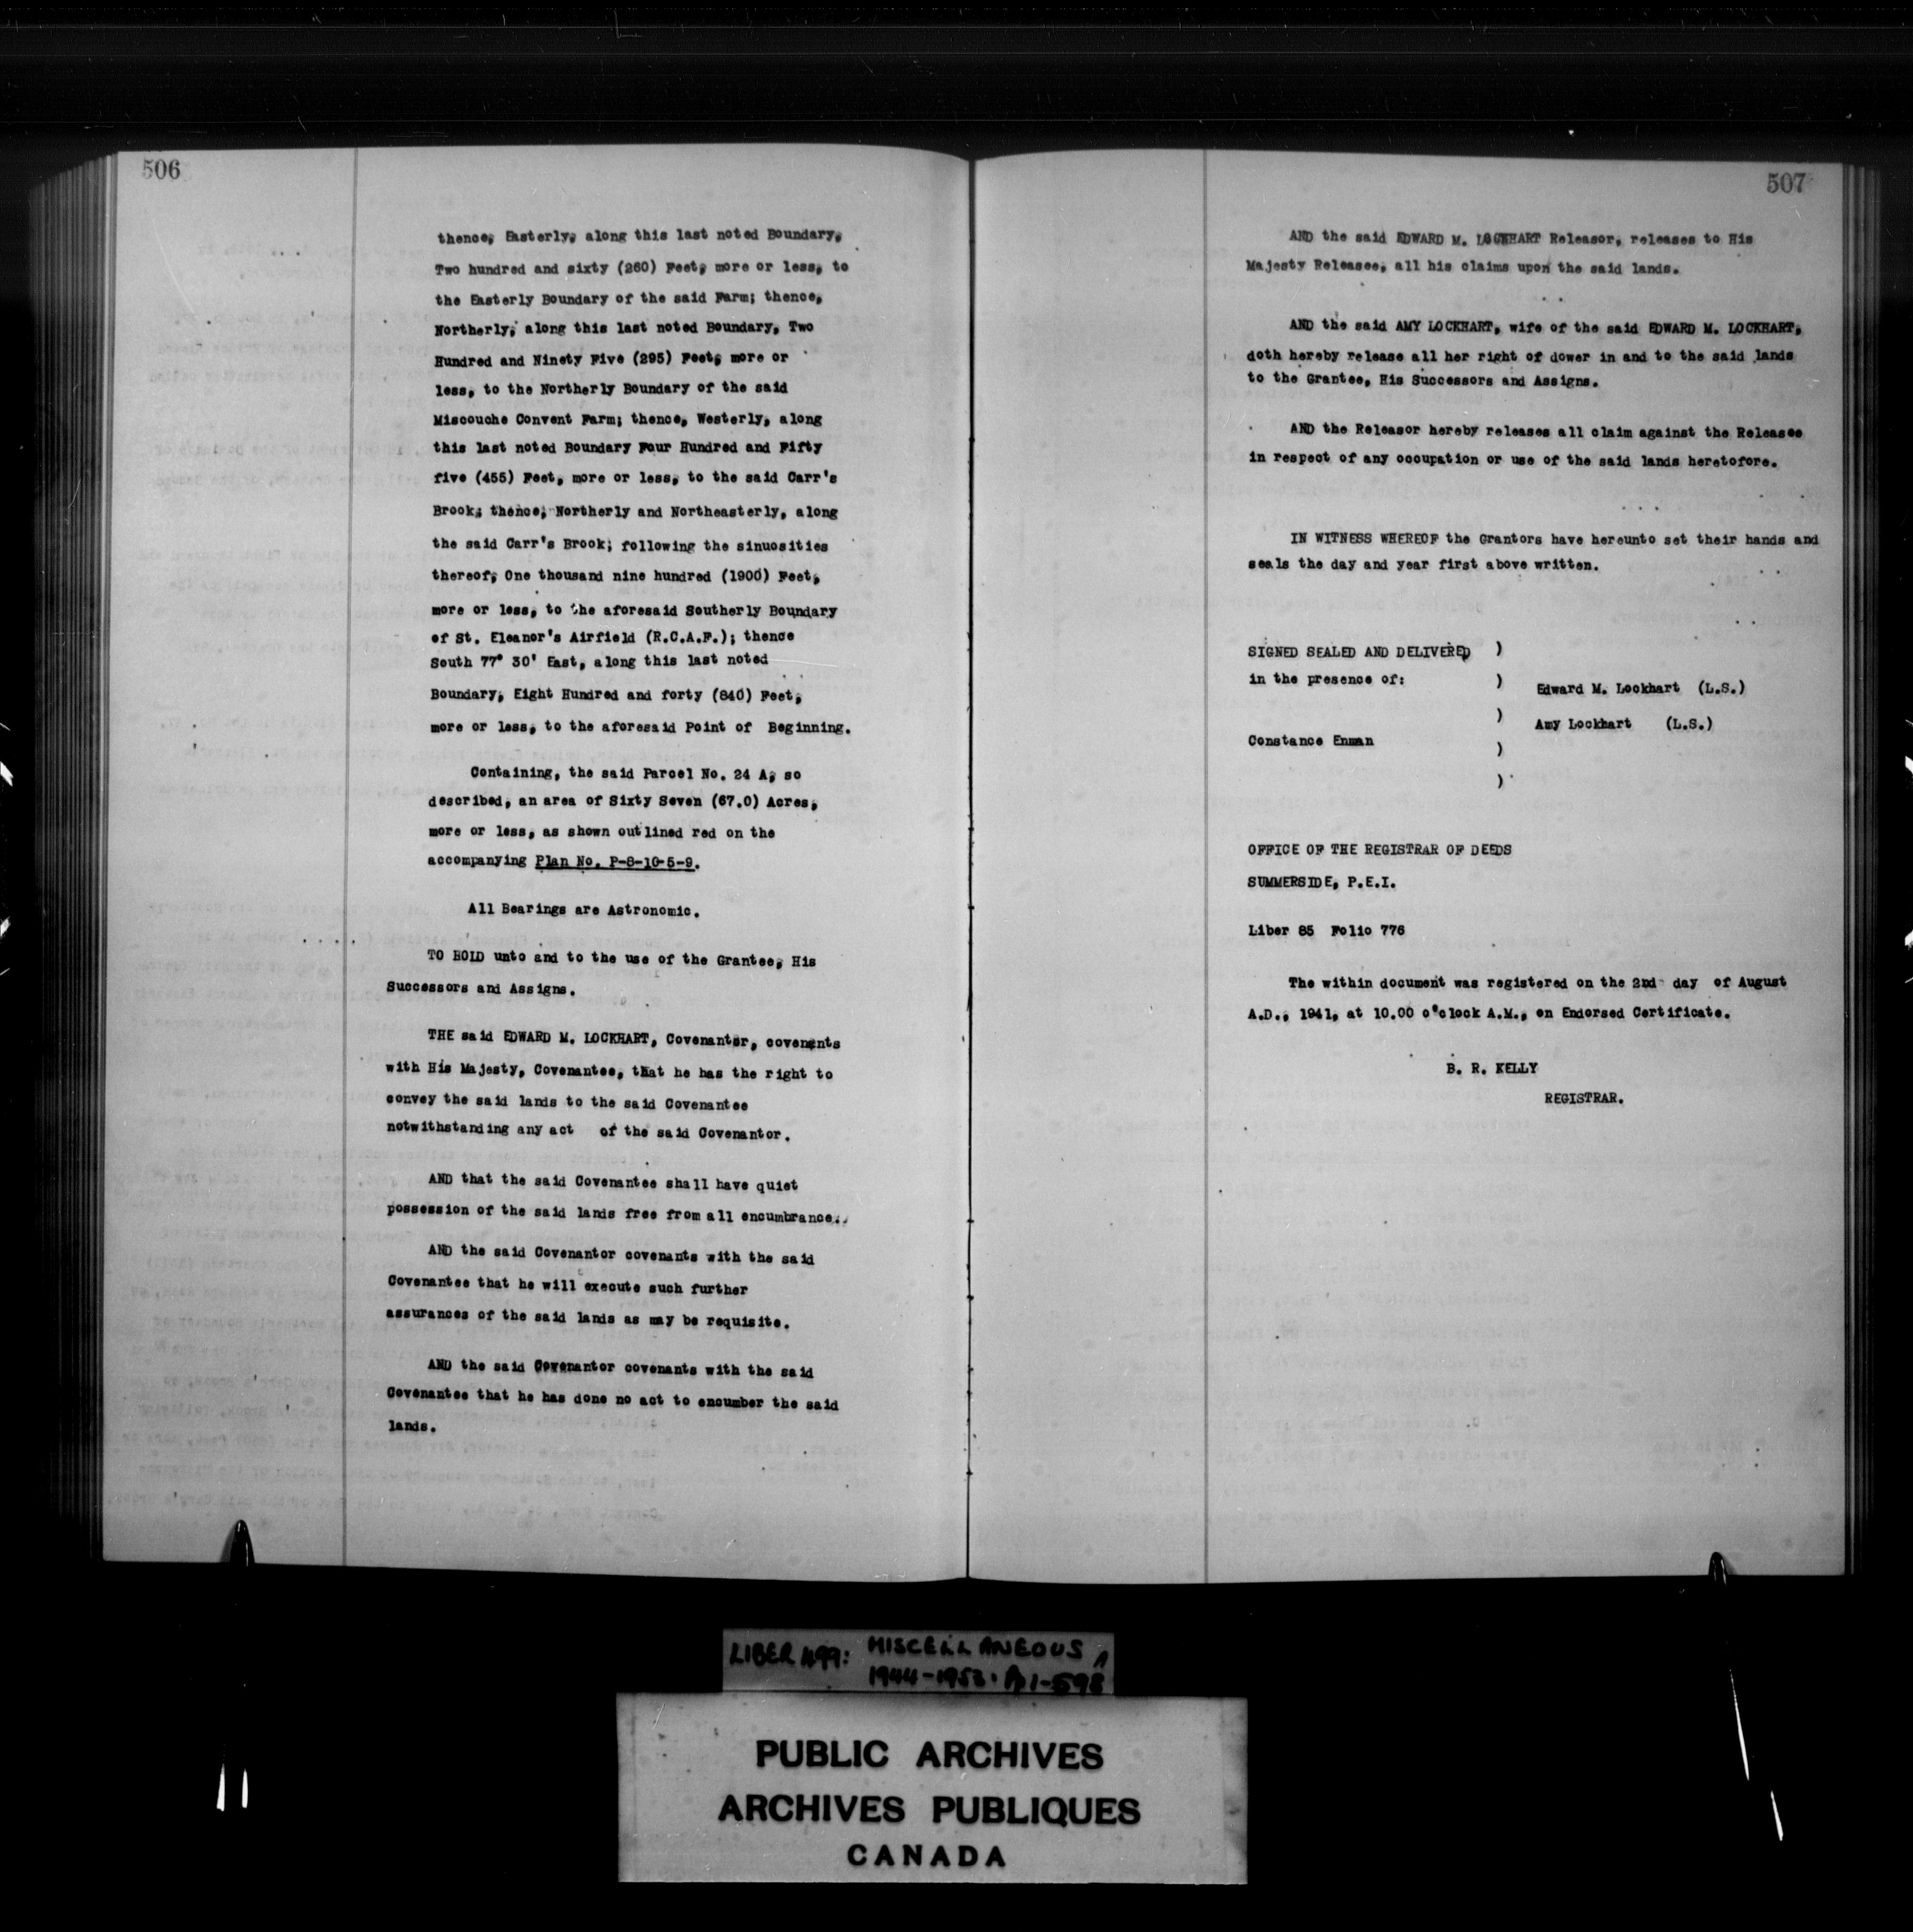 506
thence, Easterly, along this last noted Boundary,
Two hundred and sixty (260) Feet, more or less, to
the Easterly Boundary of the said Farm; thence,
Northerly, along this last noted Boundary, Two
Hundred and Ninety Five (295) Feet, more or
less, to the Northerly Boundary of the said
Miscouche Convent Farm; thence, Westerly, along
this last noted Boundary Four Hundred and Fifty
five (455) Feet, more or less, to the said Carr's
Brook; thence, Northerly and Northeasterly, along
the said Carr's Brook; following the sinuosities
thereof, One thousand nine hundred (1900) Feet,
more or less, to the aforesaid Southerly Boundary
of St. Eleanor's Airfield (R.C.A.F.); thence
South 77° 30' East, along this last noted
Boundary, Eight Hundred and forty (840) Feet,
more or less, to the aforesaid Point of Beginning.
Containing, the said Parcel No. 24 A, so
described, an area of Sixty Seven (67.0) Acres,
more or less, as shown outlined red on the
accompanying Plan No. P-8-10-5-9.
All Bearings are Astronomic.
TO HOLD unto and to the use of the Grantee, His
Successors and Assigns.
THE said EDWARD M. LOCKHART, Covenantor, covenants
with His Majesty, Covenantee, that he has the right to
convey the said lands to the said Covenantee
notwithstanding any act of the said Covenantor.
AND that the said Covenantee shall have quiet
possession of the said lands free from all encumbrance..
AND the said Covenantor covenants with the said
Covenantee that he will execute such further
assurances of the said lands as may be requisite.
AND the said Covenantor covenants with the said
Covenantee that he has done no act to encumber the said
lands.
507
AND the said EDWARD M. LOCKHART Releasor, releases to His
Majesty Releasee, all his claims upon the said lands.
AND the said AMY LOCKHART, wife of the said EDWARD M. LOCKHART,
doth hereby release all her right of dower in and to the said lands
to the Grantee, His Successors and Assigns.
AND the Releasor hereby releases all claim against the Releasee
in respect of any occupation or use of the said lands heretofore.
IN WITNESS WHEREOF the Grantors have hereunto set their hands and
seals the day and year first above written.
SIGNED SEALED AND DELIVERED )
in the presence of: )
Edward M. Lockhart (L.S.)
) Amy Lockhart (L.S.)
Constance Enman )
)
OFFICE OF THE REGISTRAR OF DEEDS
SUMMERSIDE, P.E.I.
Liber 85 Folio 776
The within document was registered on the 2nd day of August
A.D., 1941, at 10.00 o'clock A.M., on Endorsed Certificate.
B. R. KELLY
REGISTRAR.
LIBER 499: MISCELLANEOUS
1944-1953. Pp 1-598
PUBLIC ARCHIVES
ARCHIVES PUBLIQUES
CANADA